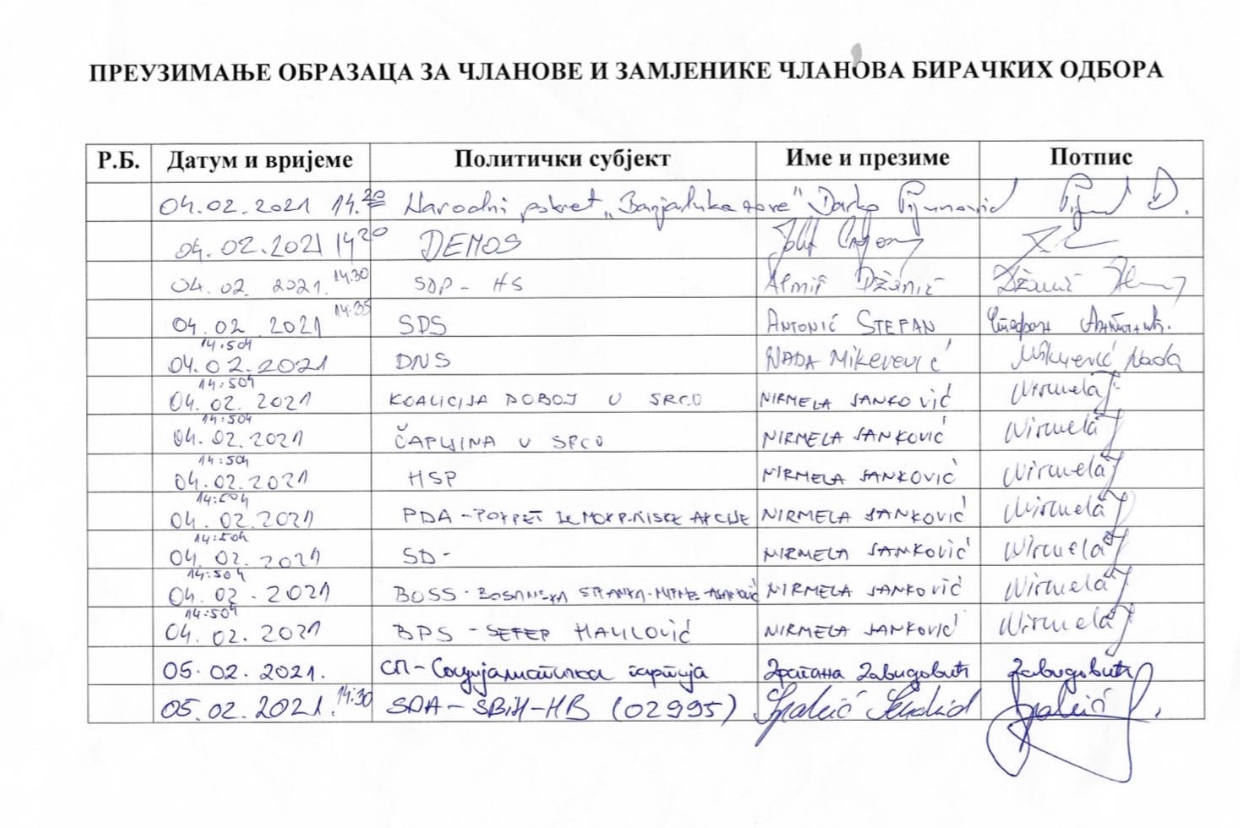 ПРЕУЗИМАЊЕ ОБРАЗАЦА ЗА ЧЛАНОВЕ И ЗАМЈЕНИКЕ ЧЛАНОВА БИРАЧКИХ ОДБОРА
Р.Б. Датум и вријеме Политички субјект Име и презиме Потпис
04.02.2021 14.20 Narodni pokret „Banjaluka zove" Darko
04.02.2021 14 20 DEMOS
04.02. 2021. 14.30 SDP - HS Almir Džanić Džanić
04.02 2021 14:35 SDS ANTONIĆ STEFAN Стефан Антонић.
14:50h
04.02.2021 DNS NADA Mikerević Mikerević Nada
14:50h
04.02.2021 KOALICIJA DOBOJ U SRCU NIRMELA JANKOVIĆ Nirmela J
14:50h
04.02.2021 ČAPLJINA U SRCU NIRMELA JANKOVIĆ Nirmela J
14:50h
04.02.2021 HSP NIRMELA JANKOVIĆ Nirmela J
14:50h
04.02.2021 PDA - NIRMELA JANKOVIĆ Nirmela J
14:50h
04.02.2021 SD - NIRMELA JANKOVIĆ Nirmela J
14:50h
04.02.2021 BOSS - BOSANSKA STRANKA - NIRMELA JANKOVIĆ Nirmela J
14:50h
04.02.2021 BPS - SEFER HALILOVIĆ NIRMELA JANKOVIĆ Nirmela J
05.02.2021. СП - Социјалистичка партија Завидовић Завидовић
05.02.2021. 14:30 SDA - SBiH - HB (02995)